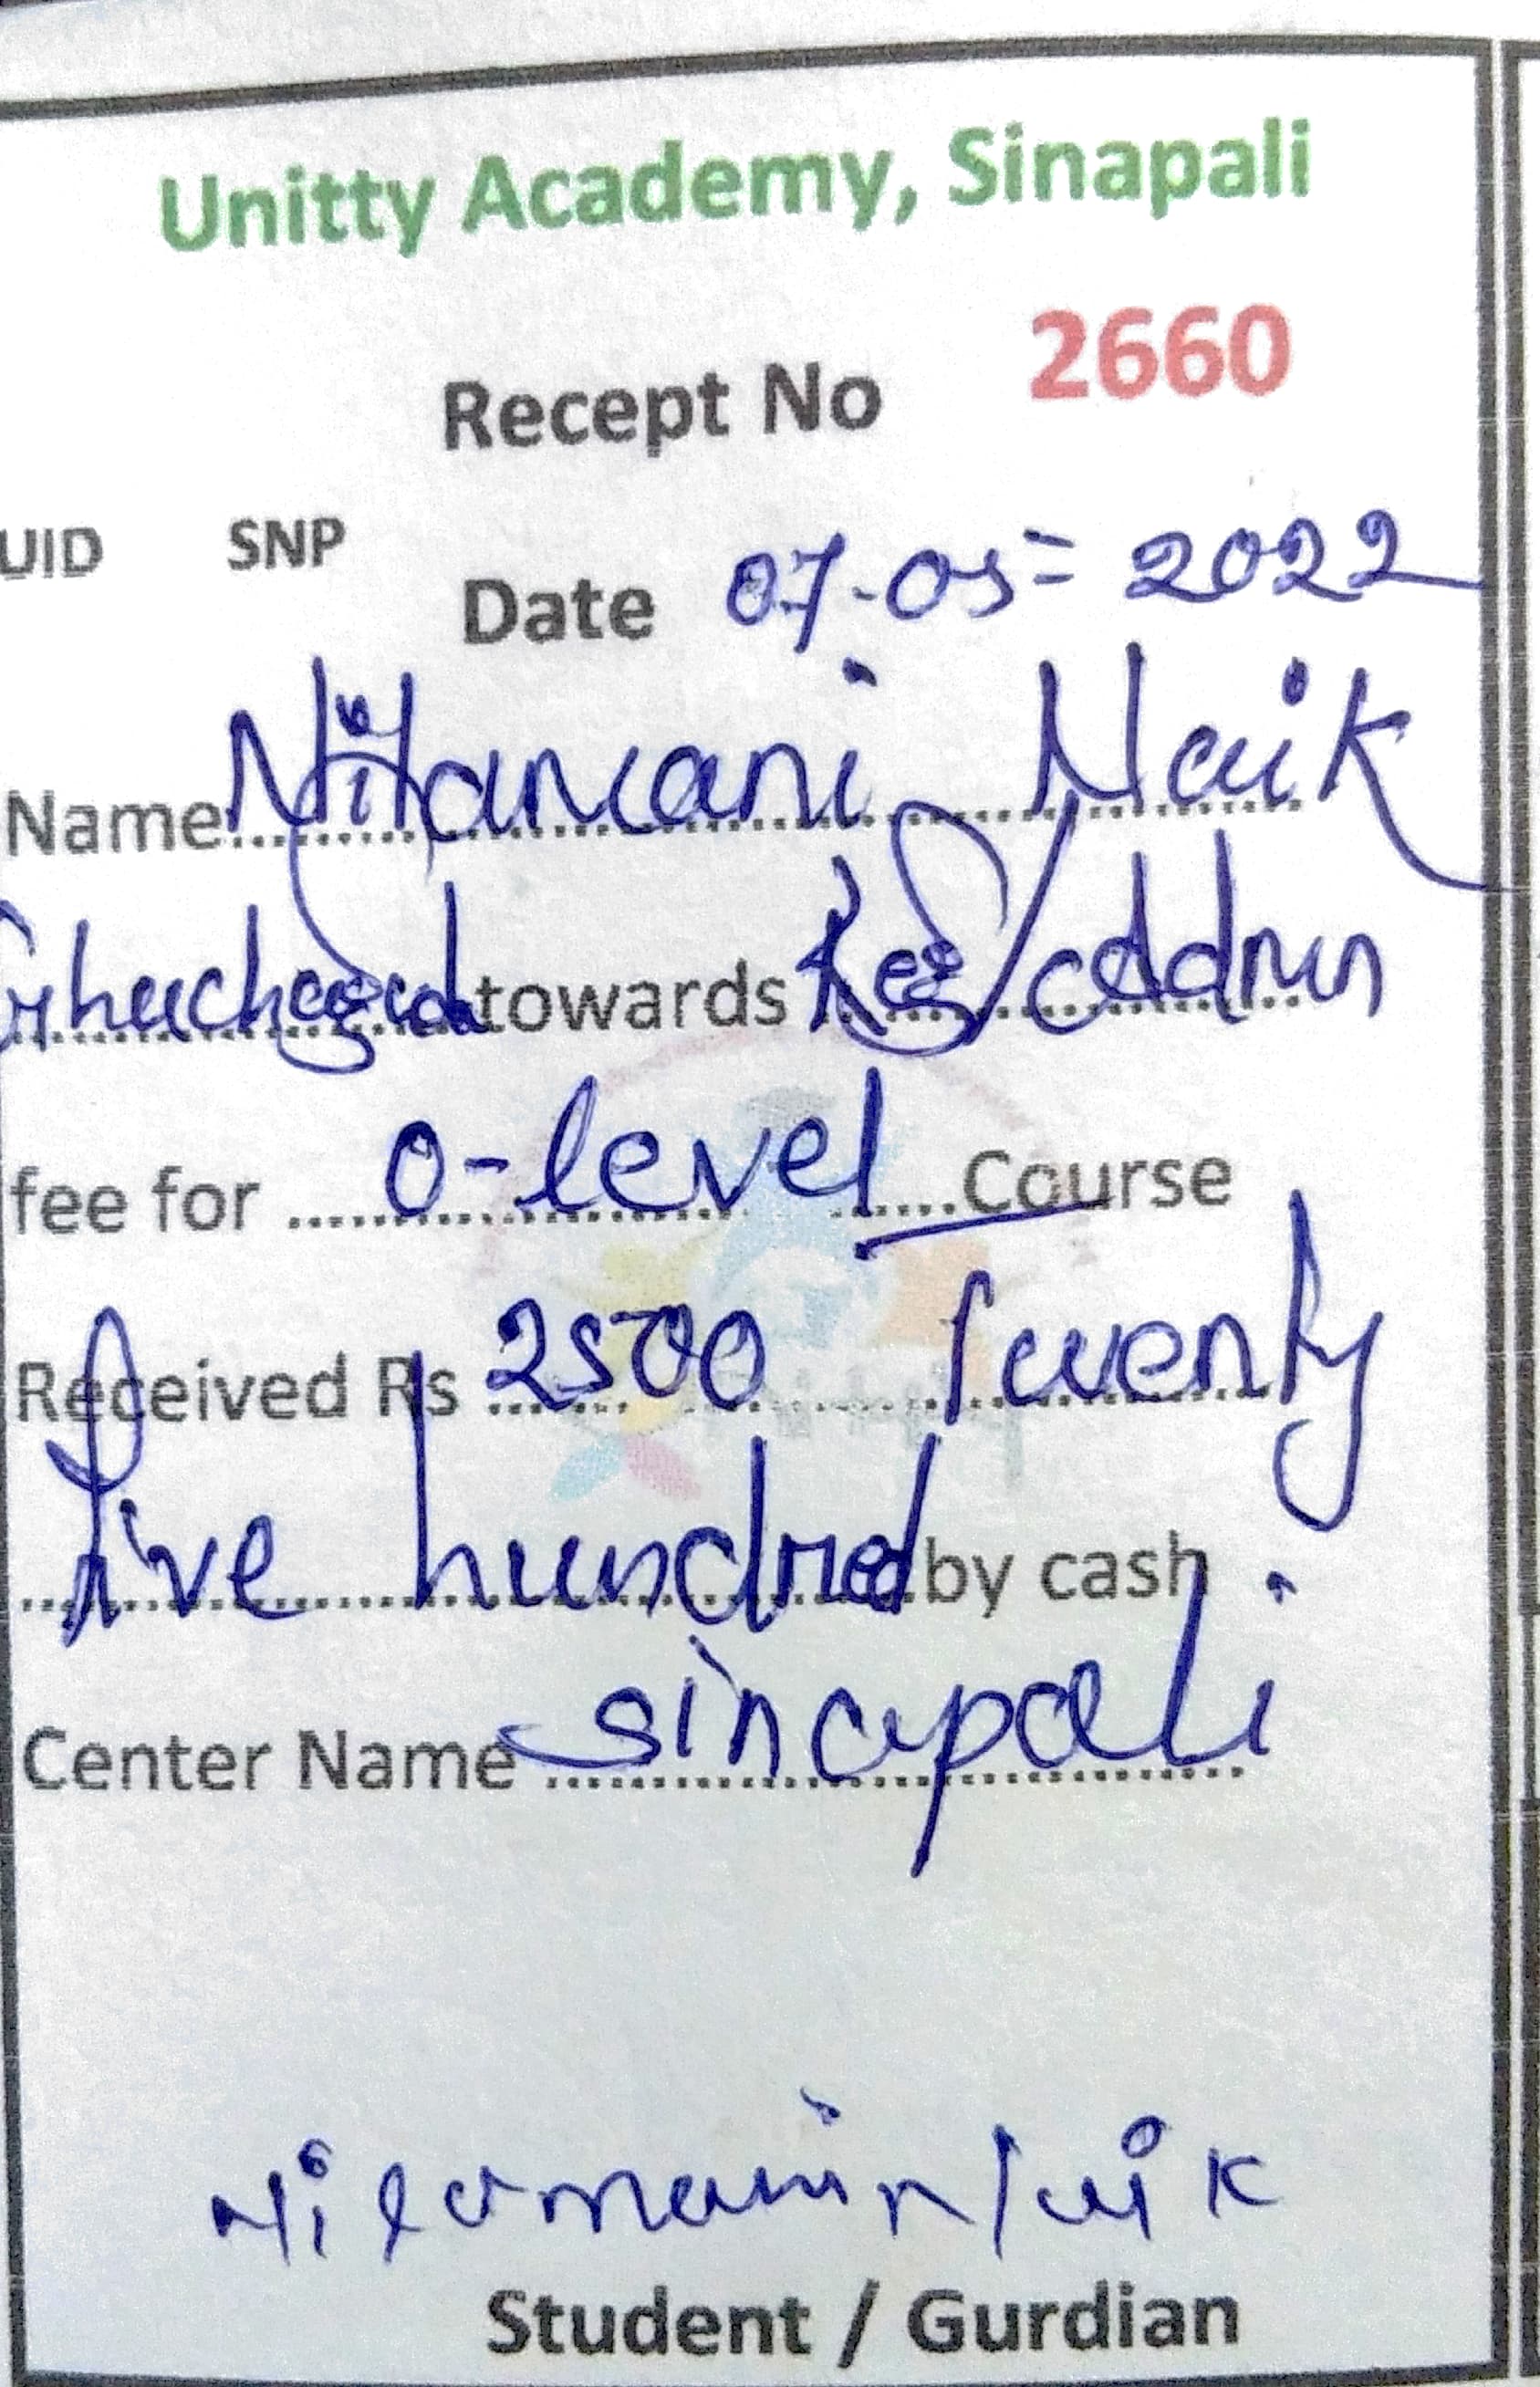 Unitty Academy, Sinapali
Recept No 2660
UID SNP
Date 07-05=2022
Name Nilamani Naik
towards Reg/addmn
fee for O-level Course
Received Rs 2500 Twenty
five hundred by cash
Center Name sinapali
Nilamani Naik
Student / Gurdian